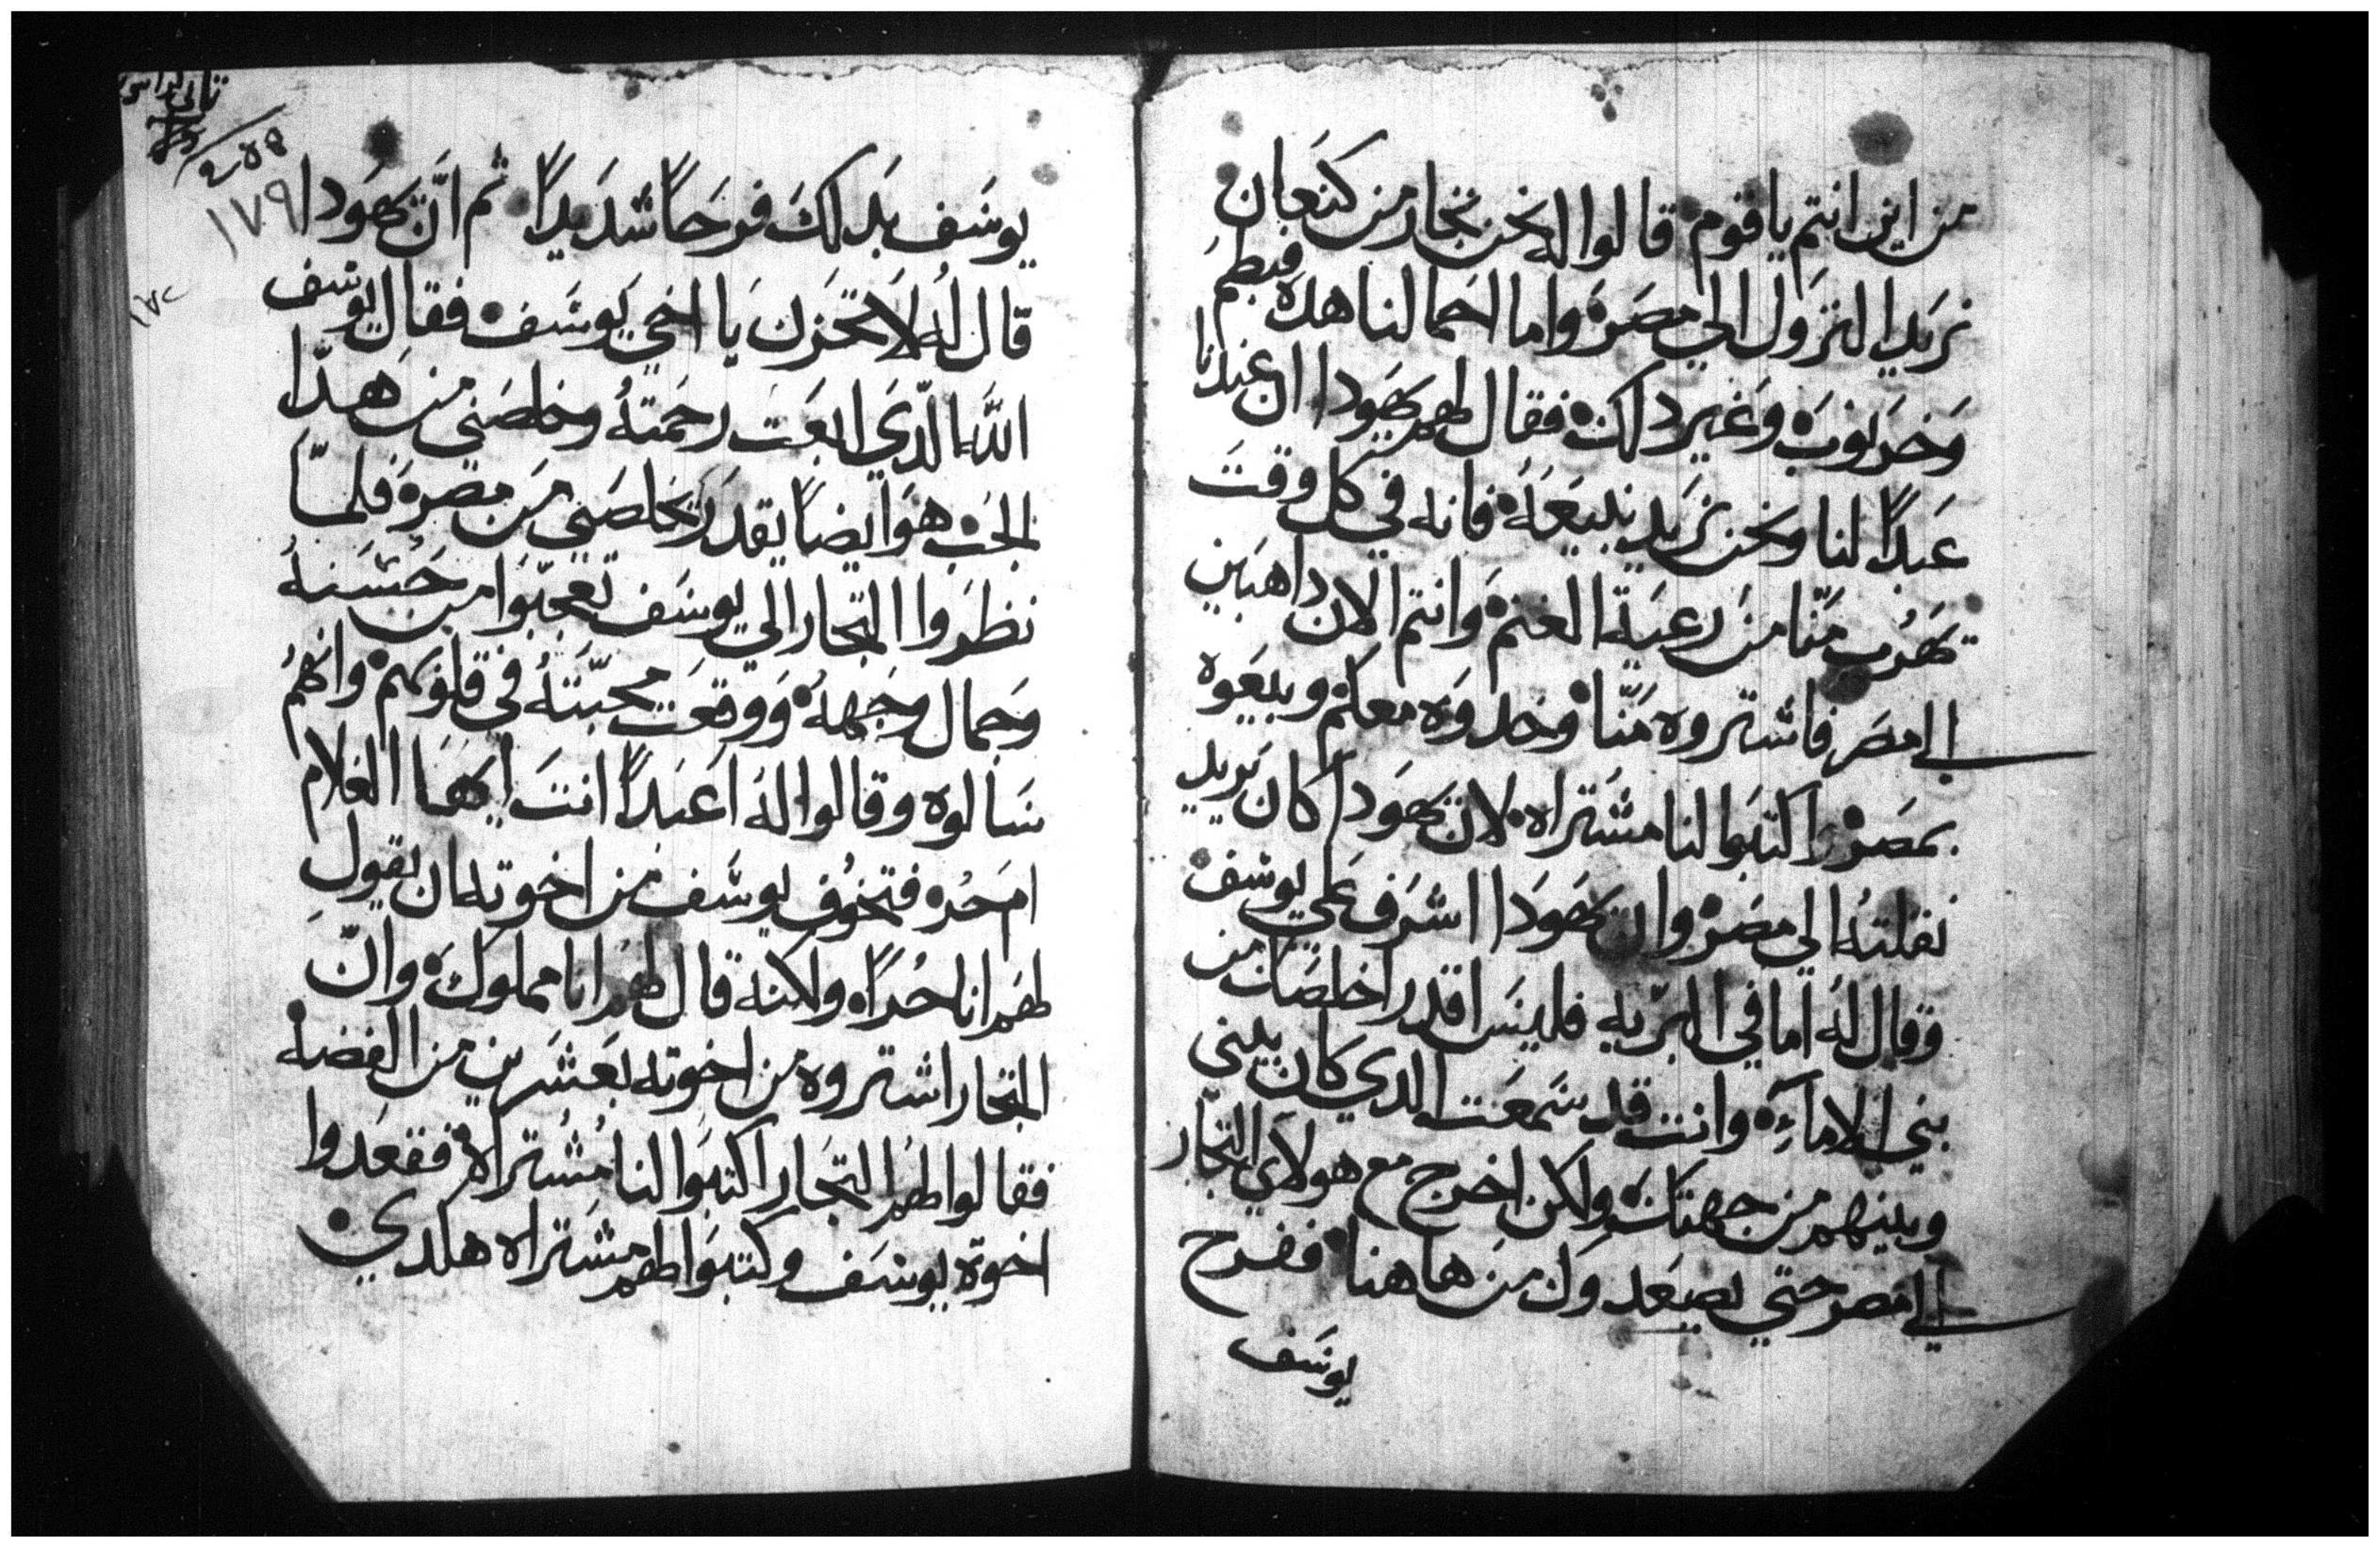 من اين انتم ياقوم قالوا له نحن تجار من كنعان
نريد النزول الي مصر واما احمالنا هده فبطم
وخرنوب وغير دلك فقال لهم يهودا ان عندنا
عبداً لنا ونحن نريد نبيعه فانه في كل وقت
يهرب منّا من رعية الغنم وانتم الان داهبين
الي مصر فاشتروه منّا وخدوه معكم وبيعوه
بمصر واكتبوا لنا مشتراه لان يهودا كان يريد
نقلته الي مصر وان يهودا اشرف علي يوسف
وقال له اما في البريه فليس اقدر اخلصك من
بني الاماء وانت قد سمعت الدي كان بيني
وبينهم من جهتك ولكن اخرج مع هولاي التجار
الي مصر حتي يصعدوك من هاهنا ففرح
يوسف
تاني كراس
١٧٩
يوسف بدلك فرحاً شديداً ثم انّ يهودا
قال له لا تحزن يا اخي يوسف فقال يوسف
الله الّدي ابعت رحمته وخلصني من هدا
الجب هو ايضاً يقدر يخلصني من مصر فلمّا
نظروا التجار الي يوسف تعجّبوا من حسنه
وجمال وجهه ووقعت محبّته في قلوبهم وانهم
سالوه وقالوا له اعبداً انت ايها الغلام
ام حره فتخوف يوسف من اخوته ان يقول
لهم انا حُراً ولاكنه قال لهم انا مملوك وانّ
التجار اشتروه من اخوته بعشرين من الفضه
فقالوا لهم التجار اكتبوا لنا مُشتراه فقعدوا
اخوة يوسف وكتبوا لهم مشتراه هكدي